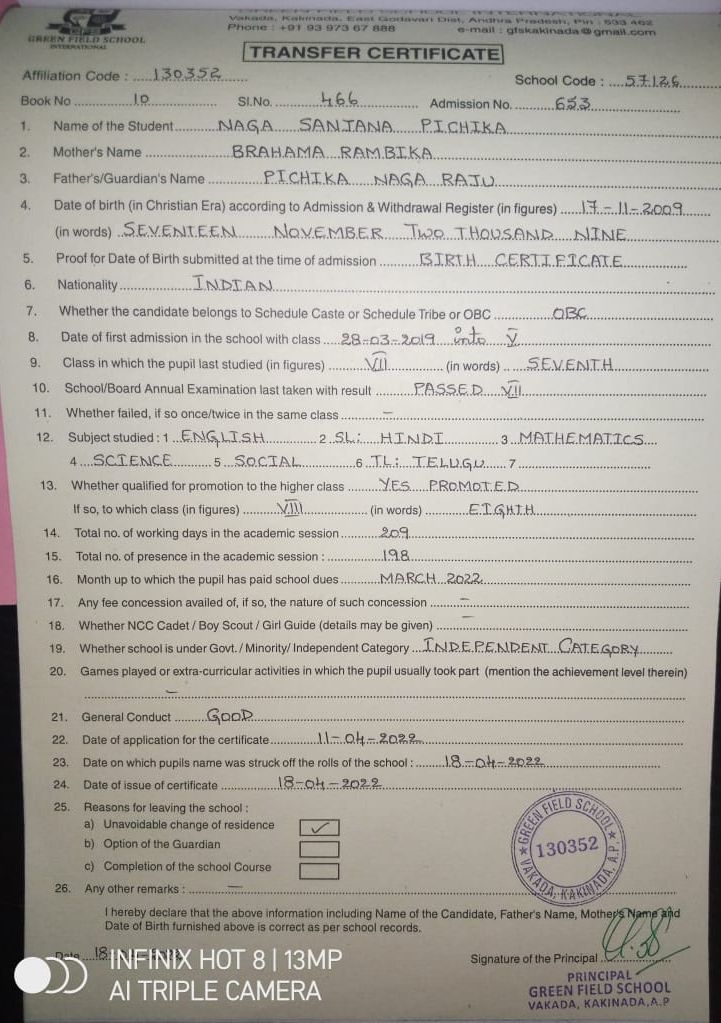 GREEN FIELD SCHOOL
INTERNATIONAL
Vakada, Kakinada, East Godavari Dist, Andhra Pradesh, Pin : 533 462
Phone : +91 93 973 67 888 e-mail : gfskakinada@gmail.com
TRANSFER CERTIFICATE
Affiliation Code : 130352 School Code : 57126
Book No 10 Sl.No. 466 Admission No. 653
1. Name of the Student NAGA SANJANA PICHIKA
2. Mother's Name BRAHAMA RAMBIKA
3. Father's/Guardian's Name PICHIKA NAGA RAJU
4. Date of birth (in Christian Era) according to Admission & Withdrawal Register (in figures) 17-11-2009
(in words) SEVENTEEN NOVEMBER TWO THOUSAND NINE
5. Proof for Date of Birth submitted at the time of admission BIRTH CERTIFICATE
6. Nationality INDIAN
7. Whether the candidate belongs to Schedule Caste or Schedule Tribe or OBC OBC
8. Date of first admission in the school with class 28-03-2019 into V
9. Class in which the pupil last studied (in figures) VII (in words) SEVENTH
10. School/Board Annual Examination last taken with result PASSED VII
11. Whether failed, if so once/twice in the same class –
12. Subject studied : 1 ENGLISH 2 SL: HINDI 3 MATHEMATICS
4 SCIENCE 5 SOCIAL 6 TL: TELUGU 7
13. Whether qualified for promotion to the higher class YES PROMOTED
If so, to which class (in figures) VIII (in words) EIGHTH
14. Total no. of working days in the academic session 209
15. Total no. of presence in the academic session : 198
16. Month up to which the pupil has paid school dues MARCH 2022
17. Any fee concession availed of, if so, the nature of such concession –
18. Whether NCC Cadet / Boy Scout / Girl Guide (details may be given) –
19. Whether school is under Govt. / Minority/ Independent Category INDEPENDENT CATEGORY
20. Games played or extra-curricular activities in which the pupil usually took part (mention the achievement level therein)
–
21. General Conduct GOOD
22. Date of application for the certificate 11-04-2022
23. Date on which pupils name was struck off the rolls of the school : 18-04-2022
24. Date of issue of certificate 18-04-2022
25. Reasons for leaving the school :
a) Unavoidable change of residence ✓
b) Option of the Guardian
c) Completion of the school Course
GREEN FIELD SCHOOL
130352
VAKADA, KAKINADA, A.P.
26. Any other remarks : –
I hereby declare that the above information including Name of the Candidate, Father's Name, Mother's Name and
Date of Birth furnished above is correct as per school records.
Date 18
Signature of the Principal
PRINCIPAL
GREEN FIELD SCHOOL
VAKADA, KAKINADA, A.P
INFINIX HOT 8 | 13MP
AI TRIPLE CAMERA